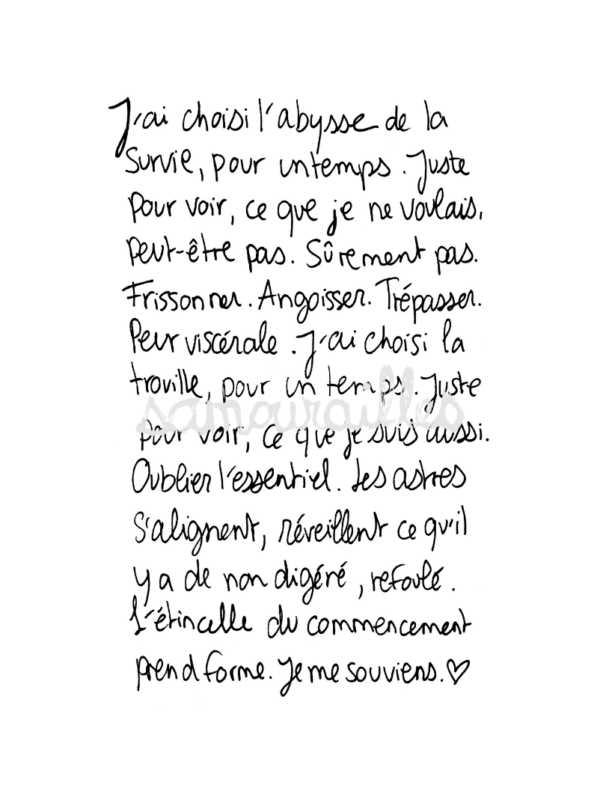 J'ai choisi l'abysse de la
survie, pour un temps. Juste
pour voir, ce que je ne voulais.
Peut-être pas. Sûrement pas.
Frissonner. Angoisser. Trépasser.
Peur viscérale. J'ai choisi la
trouille, pour un temps. Juste
samourailles
pour voir, ce que je suis aussi.
Oublier l'essentiel. Les astres
s'alignent, réveillent ce qu'il
y a de non digéré, refoulé.
L'étincelle du commencement
prend forme. Je me souviens.♡